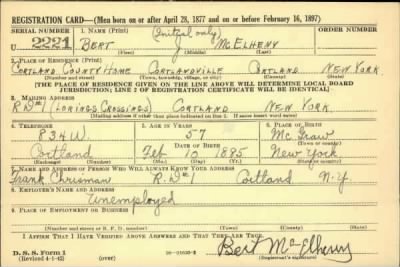 REGISTRATION CARD—(Men born on or after April 28, 1877 and on or before February 16, 1897)
SERIAL NUMBER 1. NAME (Print) (Initial only) ORDER NUMBER
U 2221 BERT J McELHENY
(First) (Middle) (Last)
2. PLACE OF RESIDENCE (Print)
CORTLAND COUNTY HOME CORTLANDVILLE CORTLAND NEW YORK
(Number and street) (Town, township, village, or city) (County) (State)
[THE PLACE OF RESIDENCE GIVEN ON THE LINE ABOVE WILL DETERMINE LOCAL BOARD
JURISDICTION; LINE 2 OF REGISTRATION CERTIFICATE WILL BE IDENTICAL]
3. MAILING ADDRESS
R.D. #1 (LORINGS CROSSINGS) CORTLAND NEW YORK
[Mailing address if other than place indicated on line 2. If same insert word same]
4. TELEPHONE 5. AGE IN YEARS 6. PLACE OF BIRTH
834W 57 McGraw
DATE OF BIRTH (Town or county)
Cortland Feb 10 1885 New York
(Exchange) (Number) (Mo.) (Day) (Yr.) (State or country)
7. NAME AND ADDRESS OF PERSON WHO WILL ALWAYS KNOW YOUR ADDRESS
Frank Chrisman R.D. #1 Cortland N.Y.
8. EMPLOYER'S NAME AND ADDRESS
Unemployed
9. PLACE OF EMPLOYMENT OR BUSINESS
(Number and street or R. F. D. number) (Town) (County) (State)
I AFFIRM THAT I HAVE VERIFIED ABOVE ANSWERS AND THAT THEY ARE TRUE.
D. S. S. Form 1 Bert McElheny
(Revised 4-1-42) (over) (Registrant's signature)